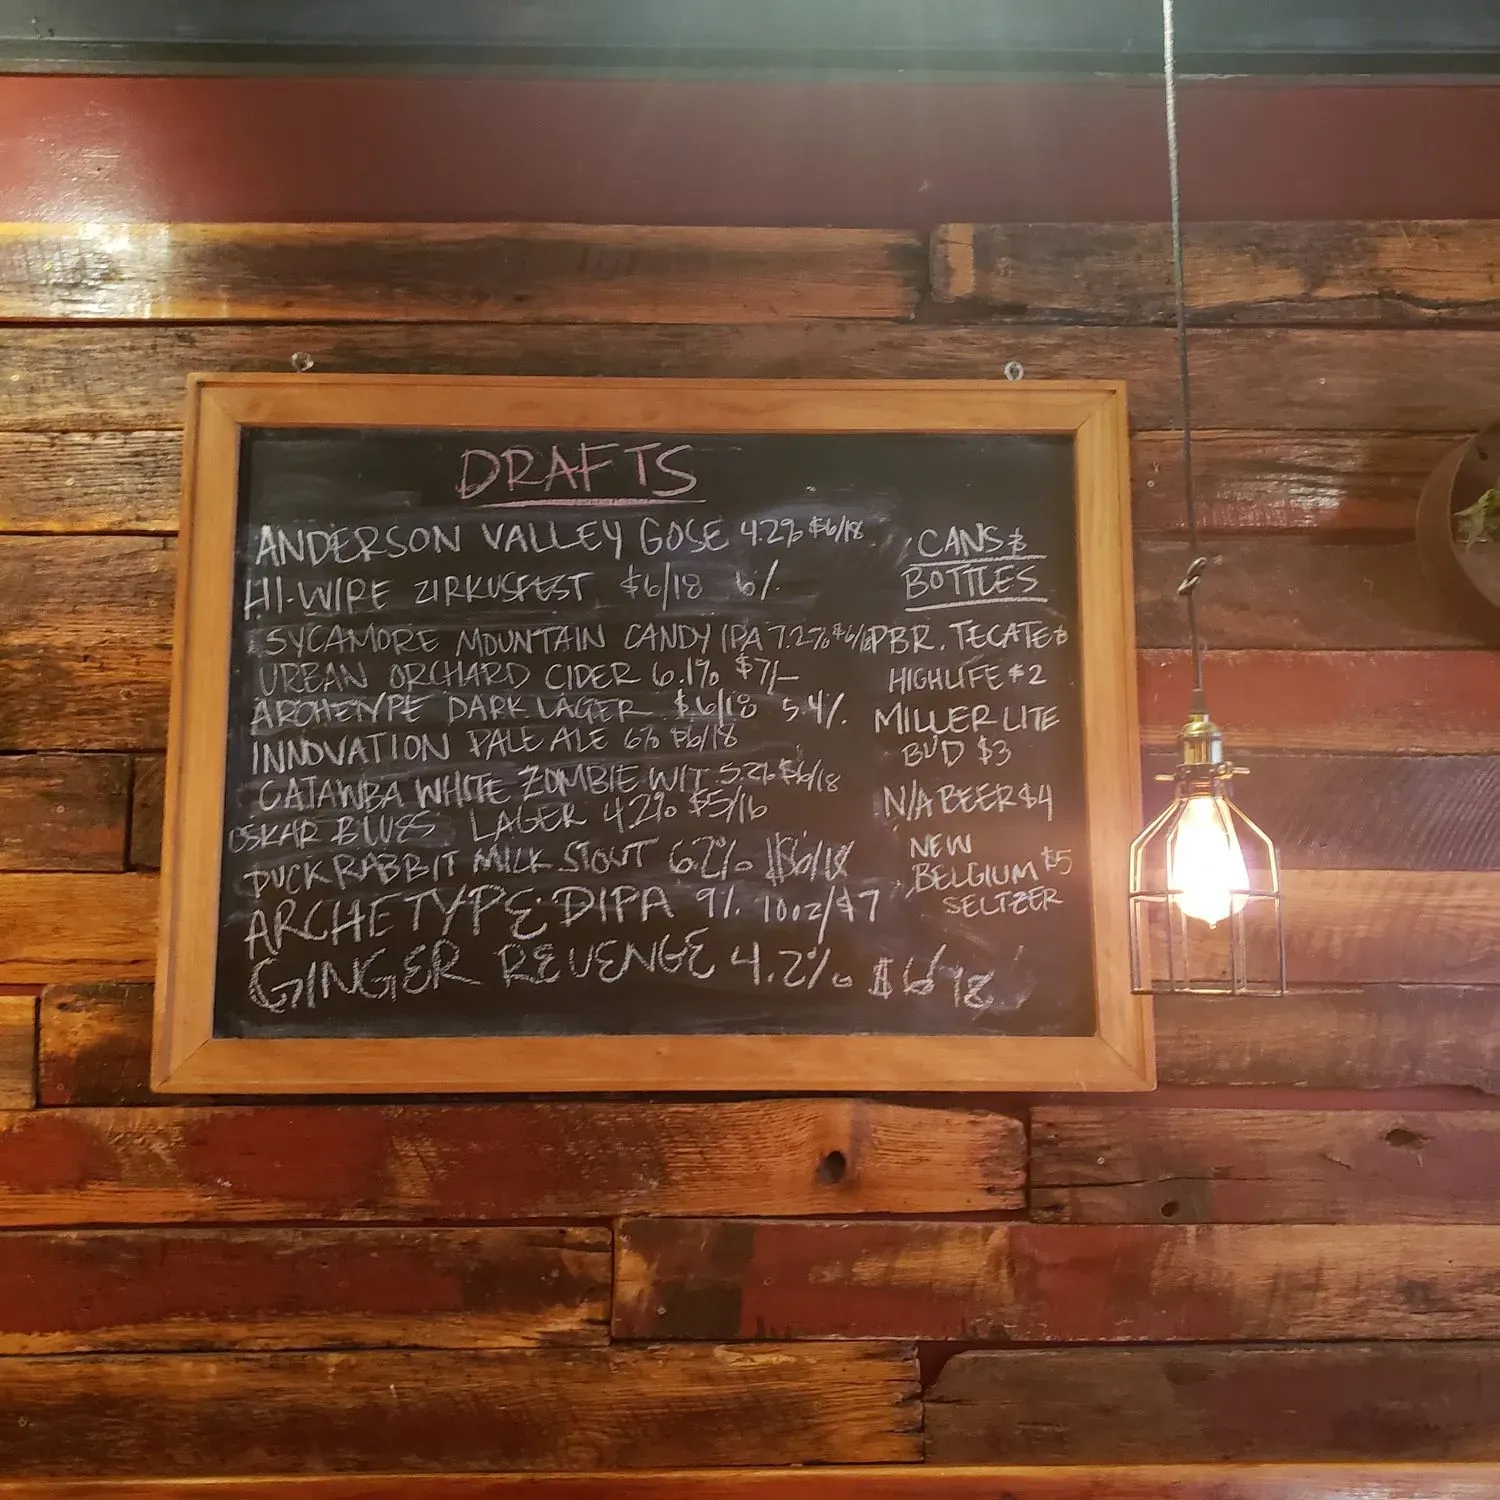 DRAFTS
ANDERSON VALLEY GOSE 4.2% $6/18
HI-WIRE ZIRKUSFEST $6/18 6%
SYCAMORE MOUNTAIN CANDY IPA 7.2% $6/18
URBAN ORCHARD CIDER 6.1% $7/—
ARCHETYPE DARK LAGER $6/18 5.4%
INNOVATION PALE ALE 6% $6/18
CATAWBA WHITE ZOMBIE WIT 5.2% $6/18
OSKAR BLUES LAGER 4.2% $5/16
DUCK RABBIT MILK STOUT 6.2% $6/18
ARCHETYPE DIPA 9% 10oz/$7
GINGER REVENGE 4.2% $6/18
CANS &
BOTTLES
PBR, TECATE &
HIGHLIFE $2
MILLER LITE
BUD $3
N/A BEER $4
NEW
BELGIUM $5
SELTZER